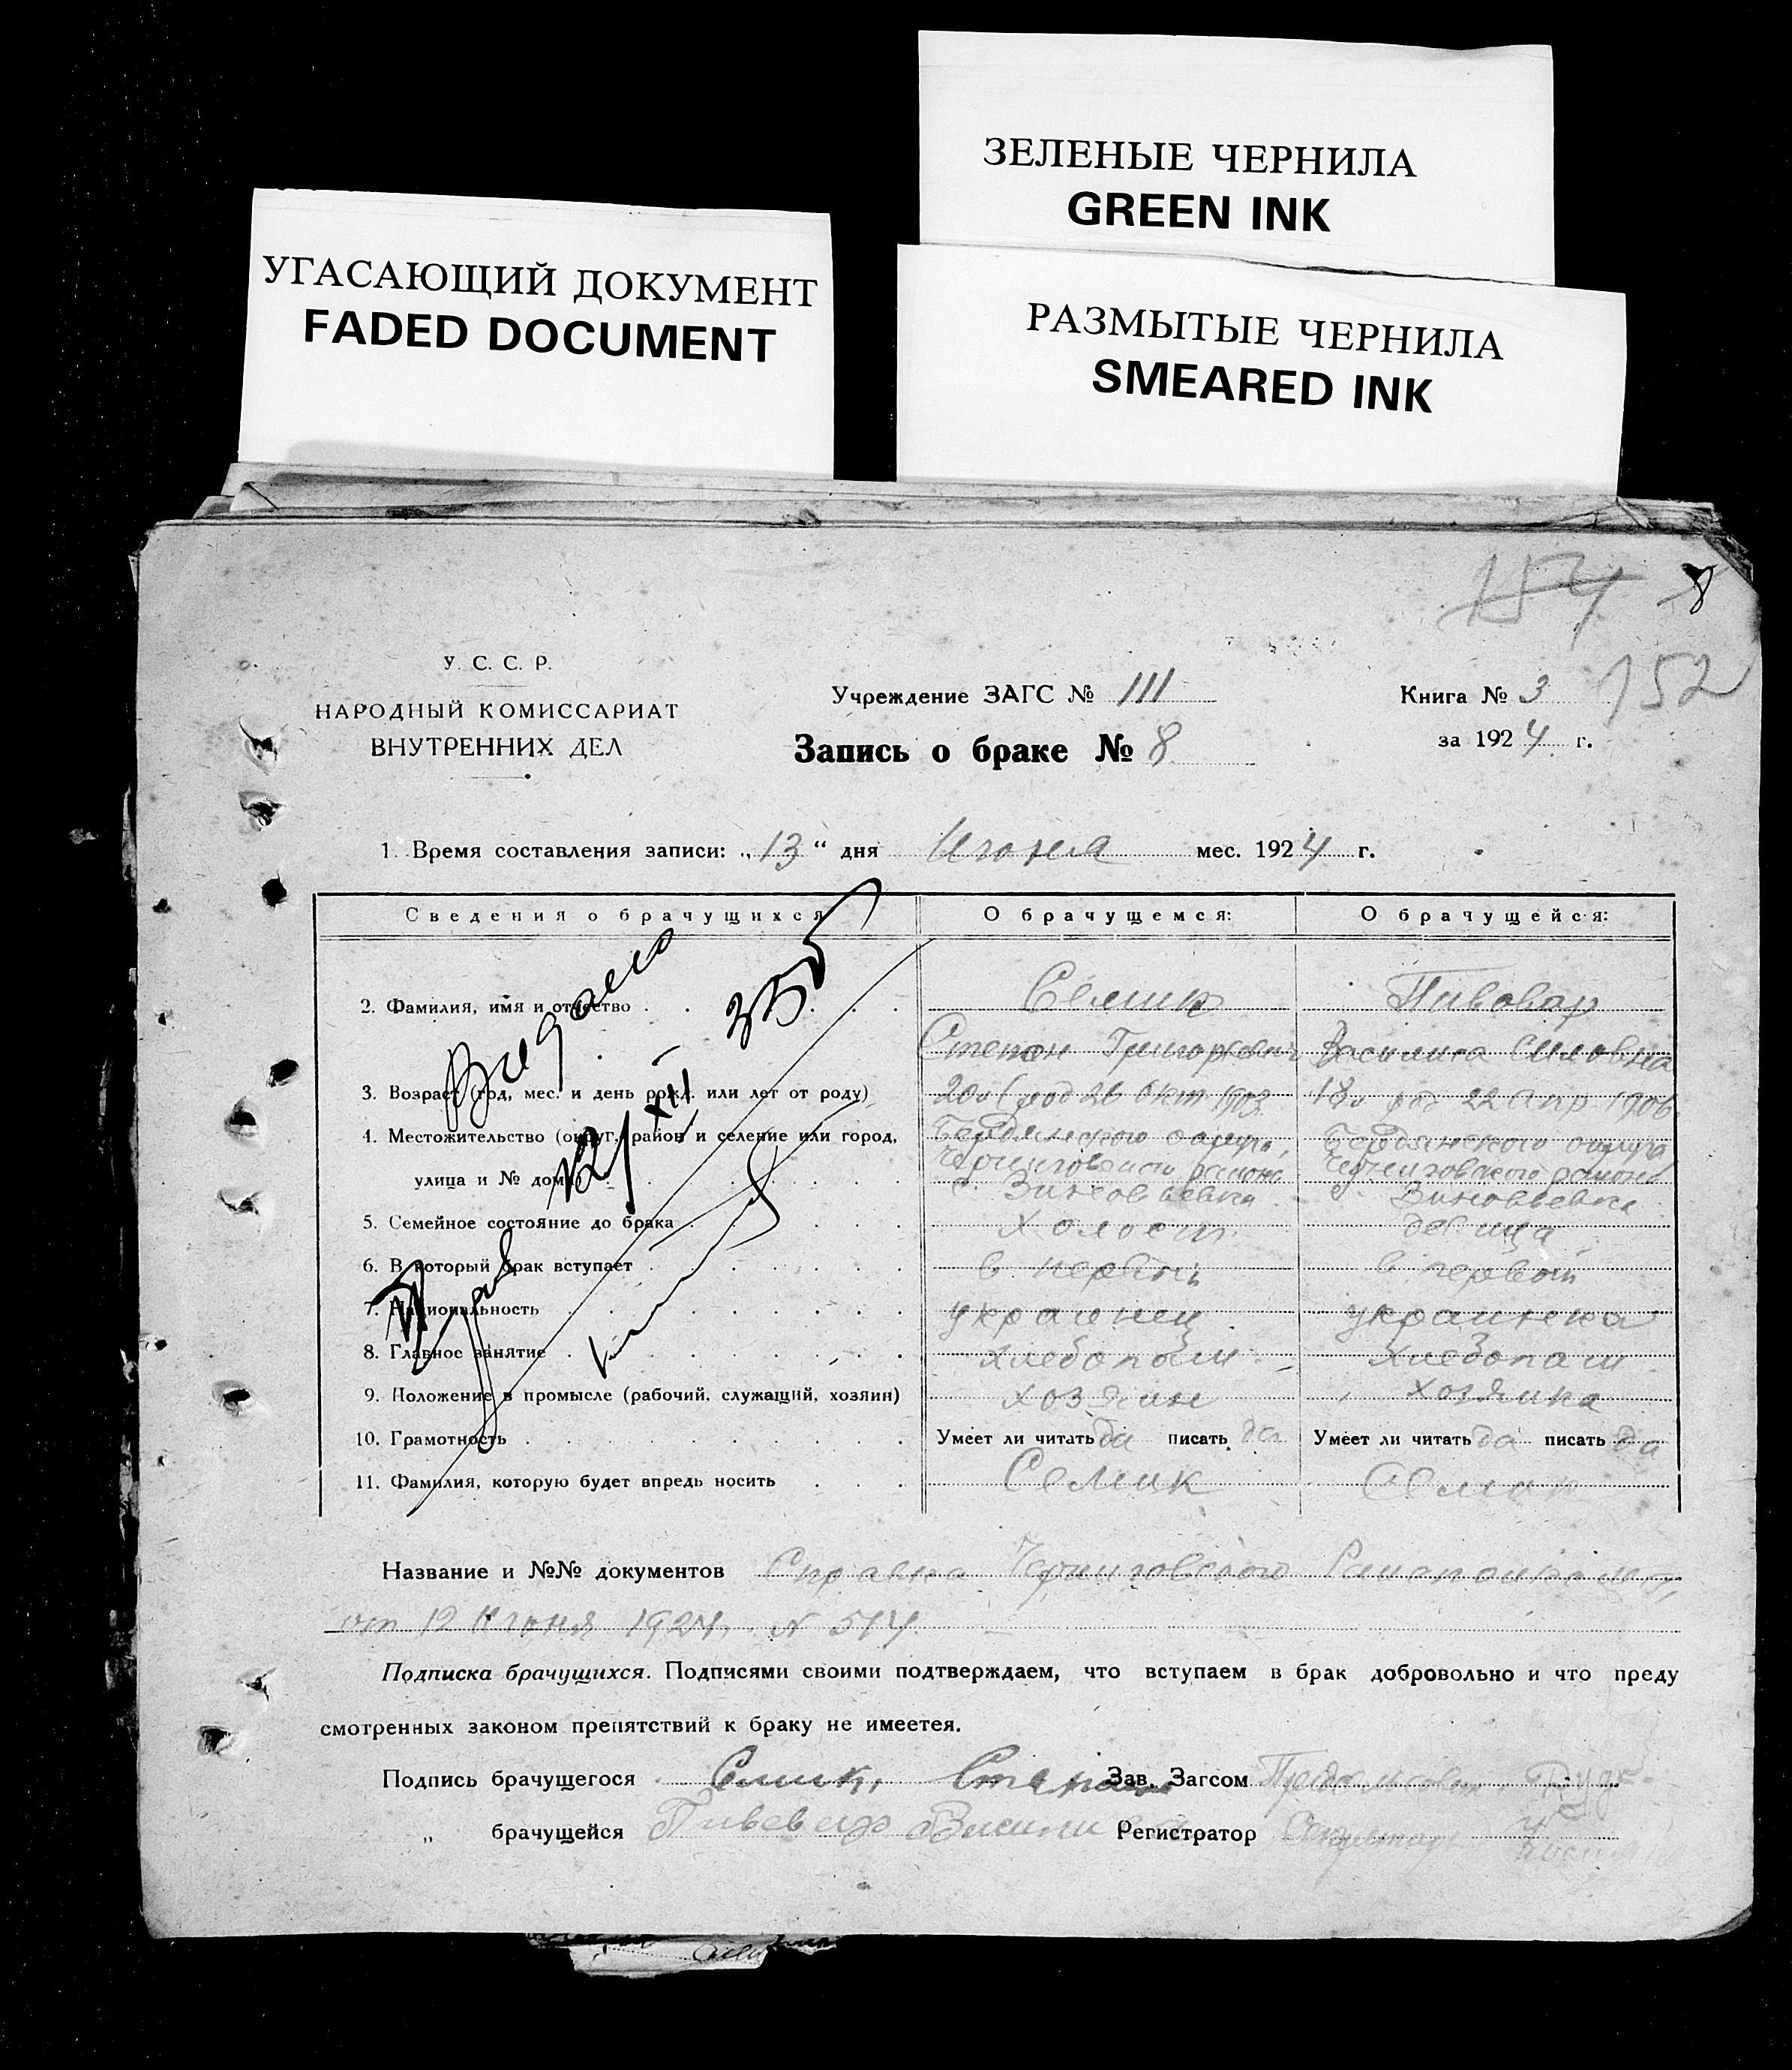 ЗЕЛЕНЫЕ ЧЕРНИЛА
GREEN INK
УГАСАЮЩИЙ ДОКУМЕНТ
FADED DOCUMENT
РАЗМЫТЫЕ ЧЕРНИЛА
SMEARED INK
154 8
152
У. С. С. Р.
НАРОДНЫЙ КОМИССАРИАТ
ВНУТРЕННИХ ДЕЛ
Учреждение ЗАГС № 111
Запись о браке № 8
Книга № 3
за 1924 г.
1. Время составления записи: „13“ дня Июня мес. 1924 г.
Сведения о брачущихся О брачущемся: О брачущейся:
2. Фамилия, имя и отчество Семик Пивовар
Степан Григорьевич Василиса Силовна
3. Возраст (год, мес. и день рожд. или лет от роду) 20 (род 26 Окт 1903 18 22 Апр 1906
4. Местожительство (округ, район и селение или город, Бердянского округа, Бердянского округа
Черниговского района Черниговского района
улица и № дома) с. Зиновьевка с. Зиновьевка
5. Семейное состояние до брака холост девица
6. В который брак вступает в первый в первый
7. Национальность украинец украинка
8. Главное занятие хлебопаш хлебопаш
9. Положение в промысле (рабочий, служащий, хозяин) хозяин хозяйка
10. Грамотность Умеет ли читать да писать да Умеет ли читать да писать да
11. Фамилия, которую будет впредь носить Семик Семик
Название и №№ документов Справка Черниговского
от 12 Июня 1924, № 514
Подписка брачущихся. Подписями своими подтверждаем, что вступаем в брак добровольно и что преду
смотренных законом препятствий к браку не имеетея.
Подпись брачущегося Семик, Степан Зав. Загсом
„ брачущейся Пивовар Регистратор Секретарь